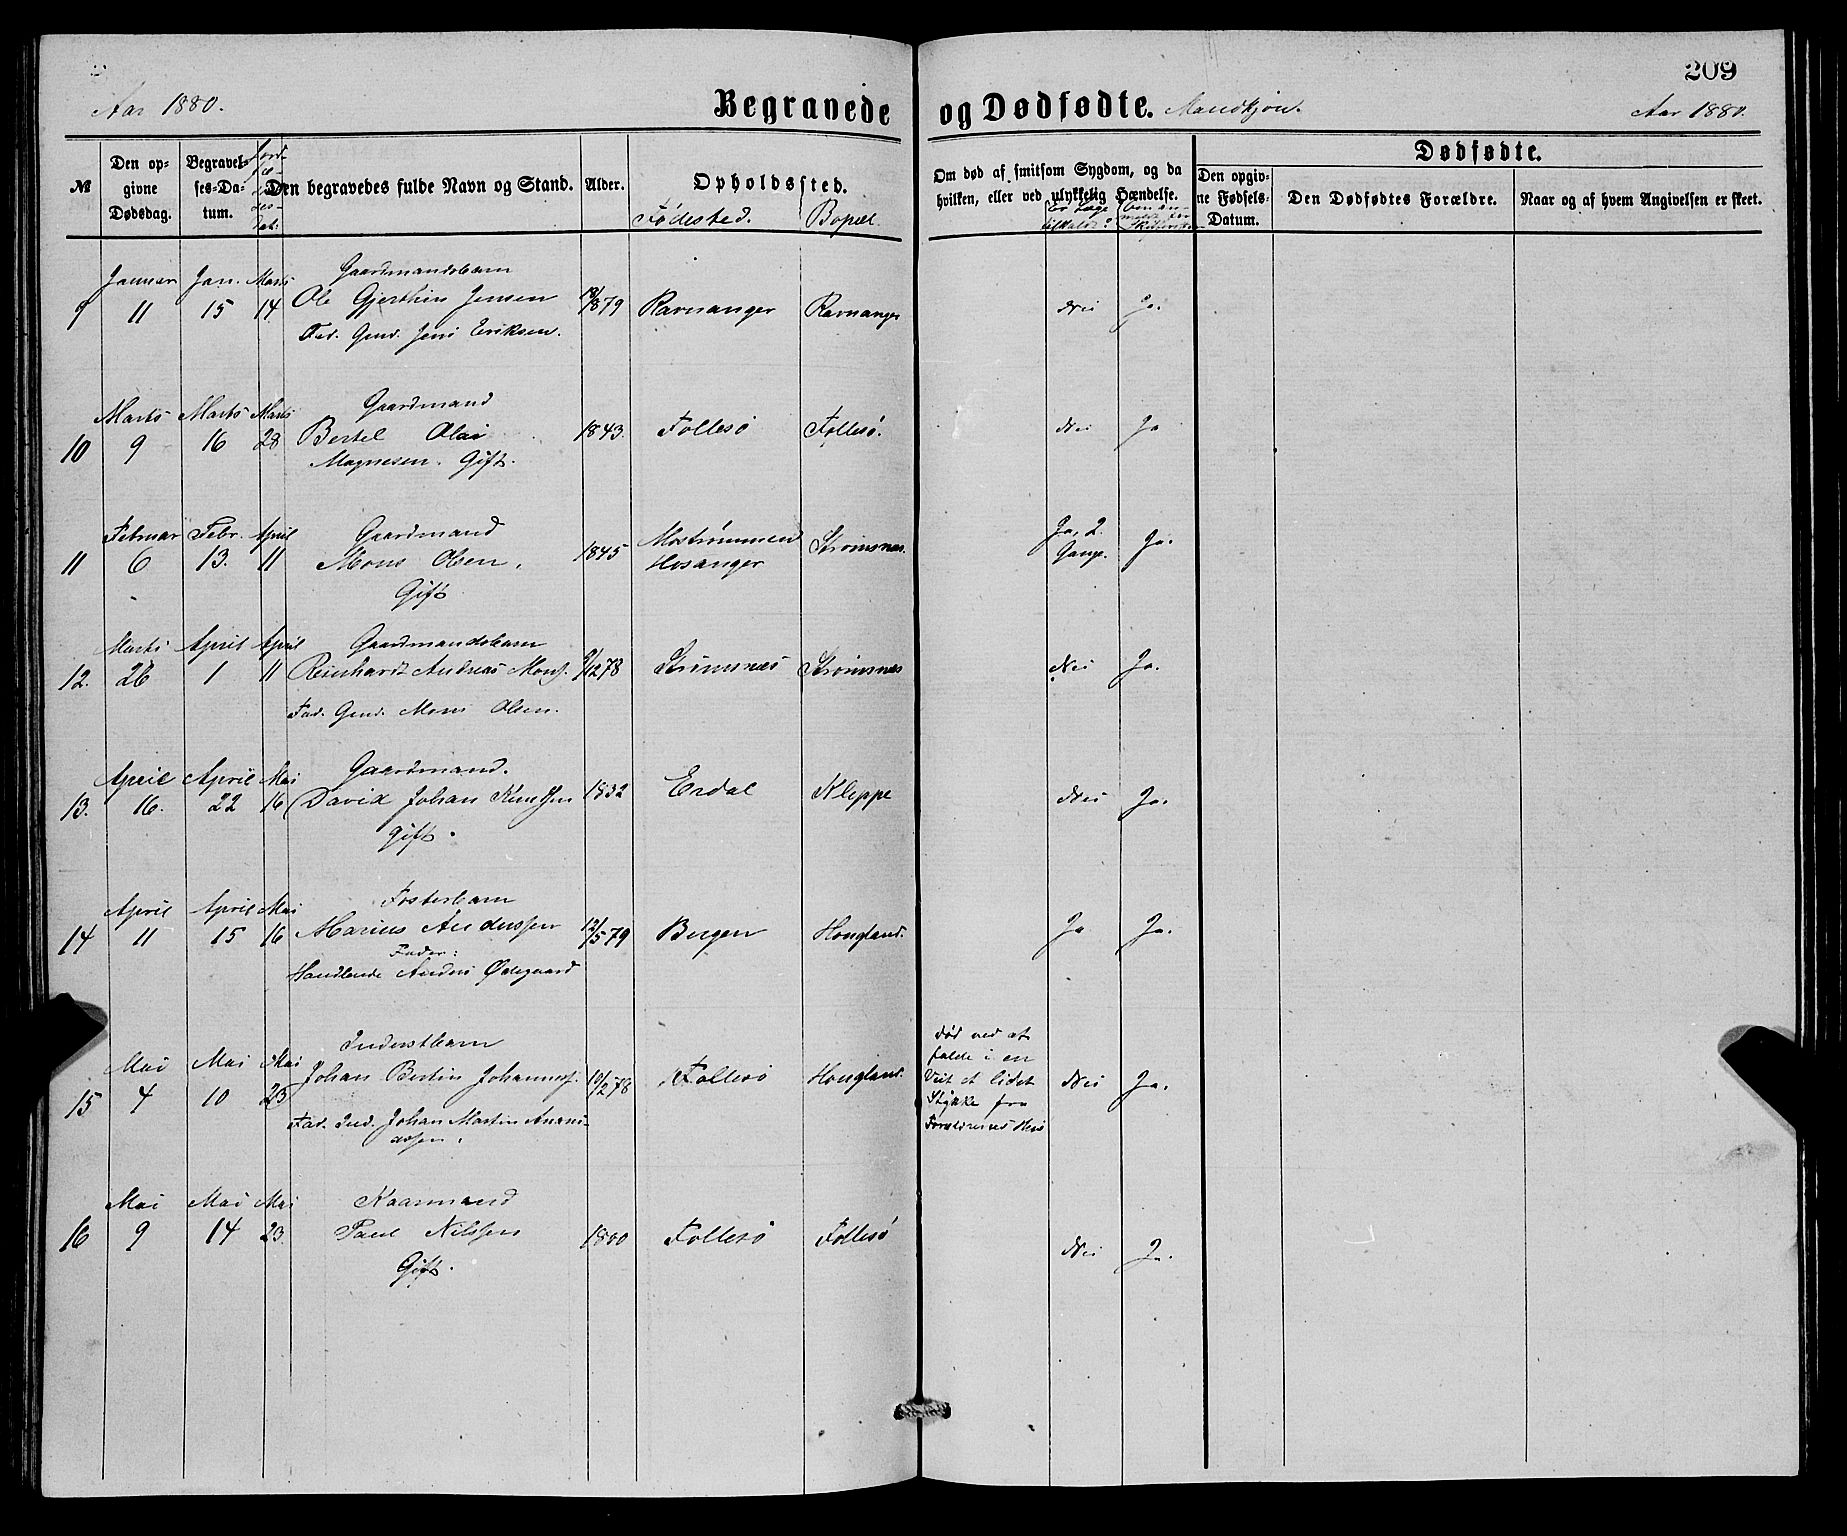 209
Aar 1880. Begravede og Dødfødte. Mandkjøn. Aar 1880.
№ Den opgivne Dødsdag. Begravelses-Datum. Den begravedes fulde Navn og Stand. Alder. Opholdssted. Fødested. Bopæl.
Om død af smitsom Sygdom, og da hvilken, eller ved ulykkelig Hændelse. Er Læge tilkaldt?
Dødfødte.
Den opgivne Fødsels-Datum. Den Dødfødtes Forældre. Naar og af hvem Angivelsen er skeet.
Januar Jan. Marts Gaardmandsbarn
9 11 15 14 Ole Gjerthin Jensen 18/8 79 Ravnanger Ravnanger Nei Ja.
Fad. Gmd. Jens Eriksen.
Marts Marts Marts Gaardmand
10 9 16 28 Bertel Olai 1843. Follesö Follesö. Nei Ja
Magnesen. Gift.
Februar Febr. April Gaardmand Mostrømmen Ja, 2
11 6 13. 11 Mons Olsen, 1845 Hosanger Strømsnes. Gange. Ja.
Gift
Marts April April Gaardmandsbarn
12. 26 1 11 Reinhardt Andreas Mons. 9/12 78 Strømsnes Strømsnes Nei Ja.
Fad. Gmd. Mons Olsen.
April April Mai Gaardmand.
13. 16. 22 16 David Johan Knudsen 1832 Erdal Kleppe Nei Ja.
gift.
April April Mai Fosterbarn
14 11 15 16 Marius Anderssen 12/5 79 Bergen Hougland. Ja Ja.
Fader:
Handlende Anders Ødegaard
Mai Mai Mai Inderstbarn Død ved at falde i en
15 4 10 23 Johan Bertin Johanness. 10/2 78 Follesö Hougland. Veit et lidet Stykke fra Forældrenes Nei Ja.
Fad. Ind. Johan Martin
Mai Mai Mai Kaarmand
16 9 14 23. Paul Nilssen 1800 Follesö Follesö Nei Ja.
Gift.